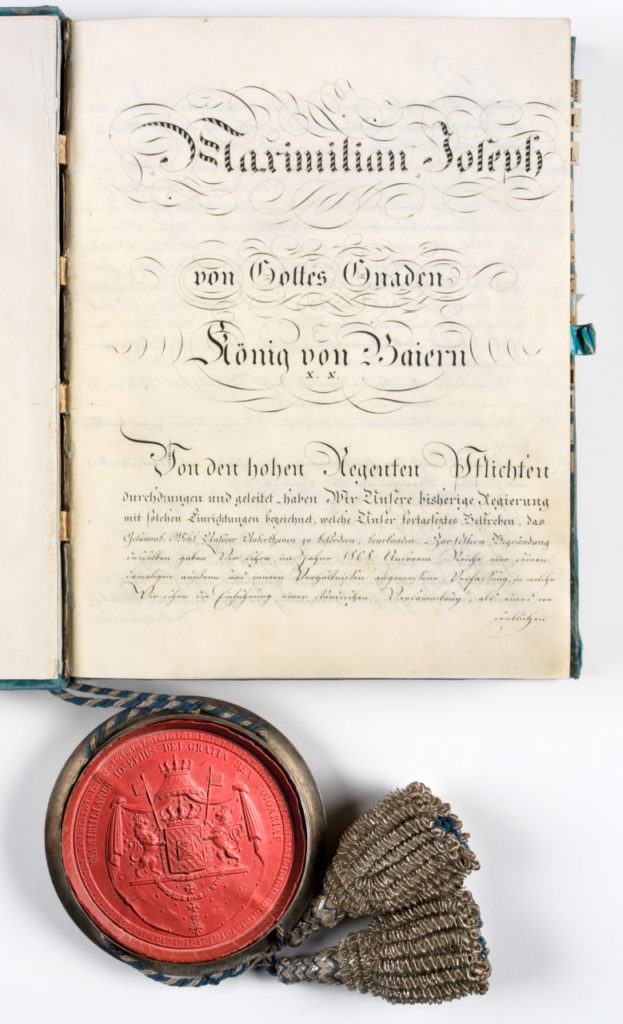 Maximilian Joseph
von Gottes Gnaden
König von Baiern
x. x.
Von den hohen Regenten Pflichten
durchdrungen und geleitet – haben Wir Unsere bisherige Regierung
mit solchen Einrichtungen bezeichnet, welche Unser fortgesetztes Bestreben, das
Gesammt-Wohl Unserer Unterthanen zu befördern, beurkunden. – Zur festern Begründung
desselben gaben Wir schon im Jahre 1808 Unserem Reiche eine seinen
damaligen äussern und innern Verhältnissen angemessene Verfassung, in welche
Wir schon die Einführung einer ständischen Versammlung, als eines we
sentlichen
MAXIMILIANUS IOSEPHUS DEI GRATIA REX BOIOARIAE